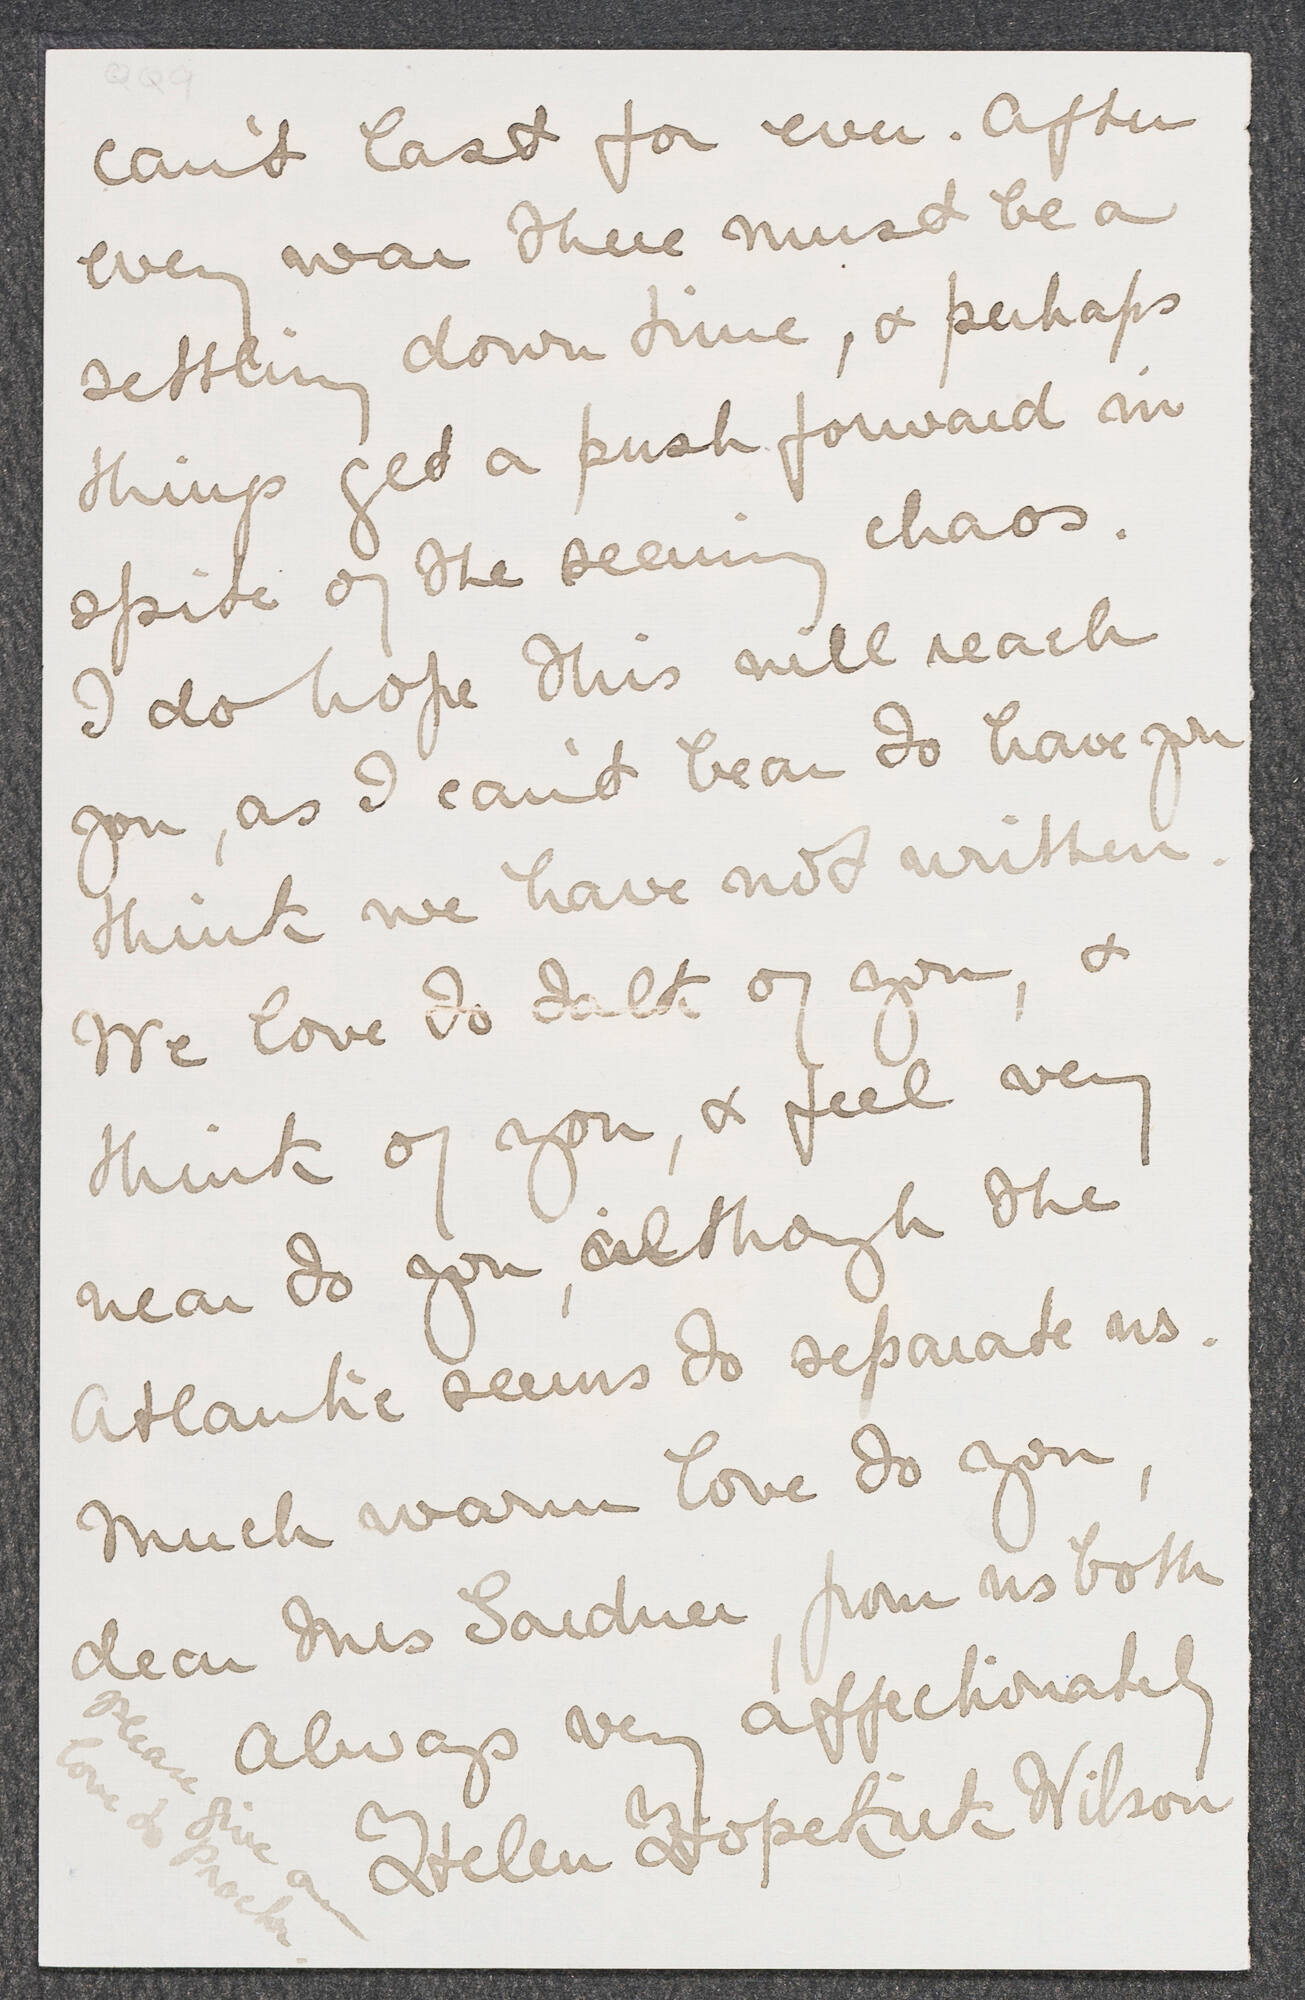 can't last for ever. After
every war there must be a
settling down time, & perhaps
things get a push forward in
spite of the seeming chaos.
I do hope this will reach
you, as I can't bear to have you
think we have not written.
We love to talk of you, &
think of you, & feel very
near to you, although the
Atlantic seems to separate us.
Much warm love to you,
dear Mrs Gardner, from us both
Always very affectionately
Helen Hopekirk Wilson
Please give our
love to Proctor.